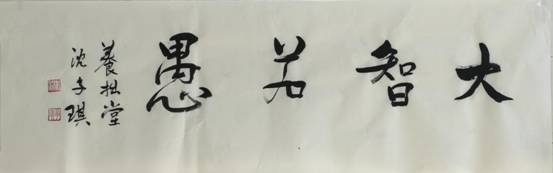 大智若愚
養拙堂
沈子琪